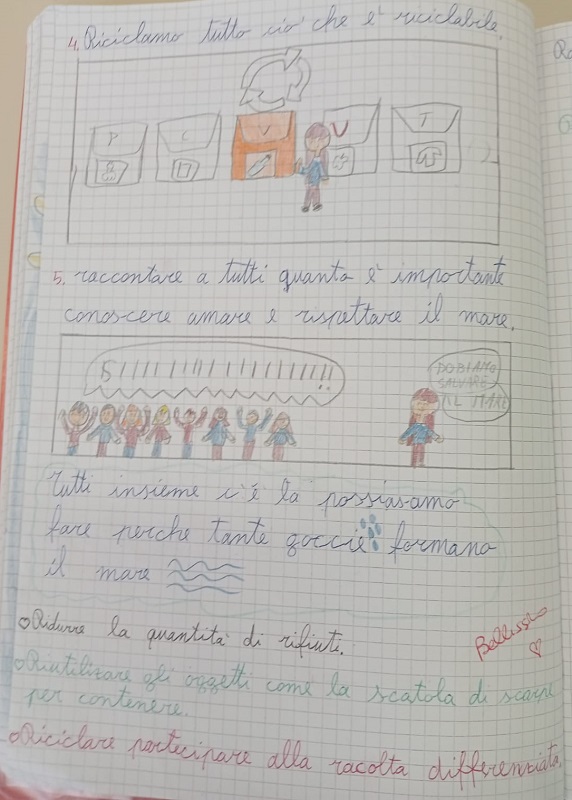 4. Riciclamo tutto ciò che è riciclabile.
P C V V T
5. raccontare a tutti quanto è importante
conoscere amare e rispettare il mare.
DOBIAMO
SALVARE
IL MARE
Tutti insieme c'è la possiasamo
fare perche tante goccie formano
il mare
Ridurre la quantità di rifiuti.
Bellissimo
Riutilizare gli oggetti come la scatola di scarpe
per contenere.
Riciclare partecipare alla racolta differenziata.